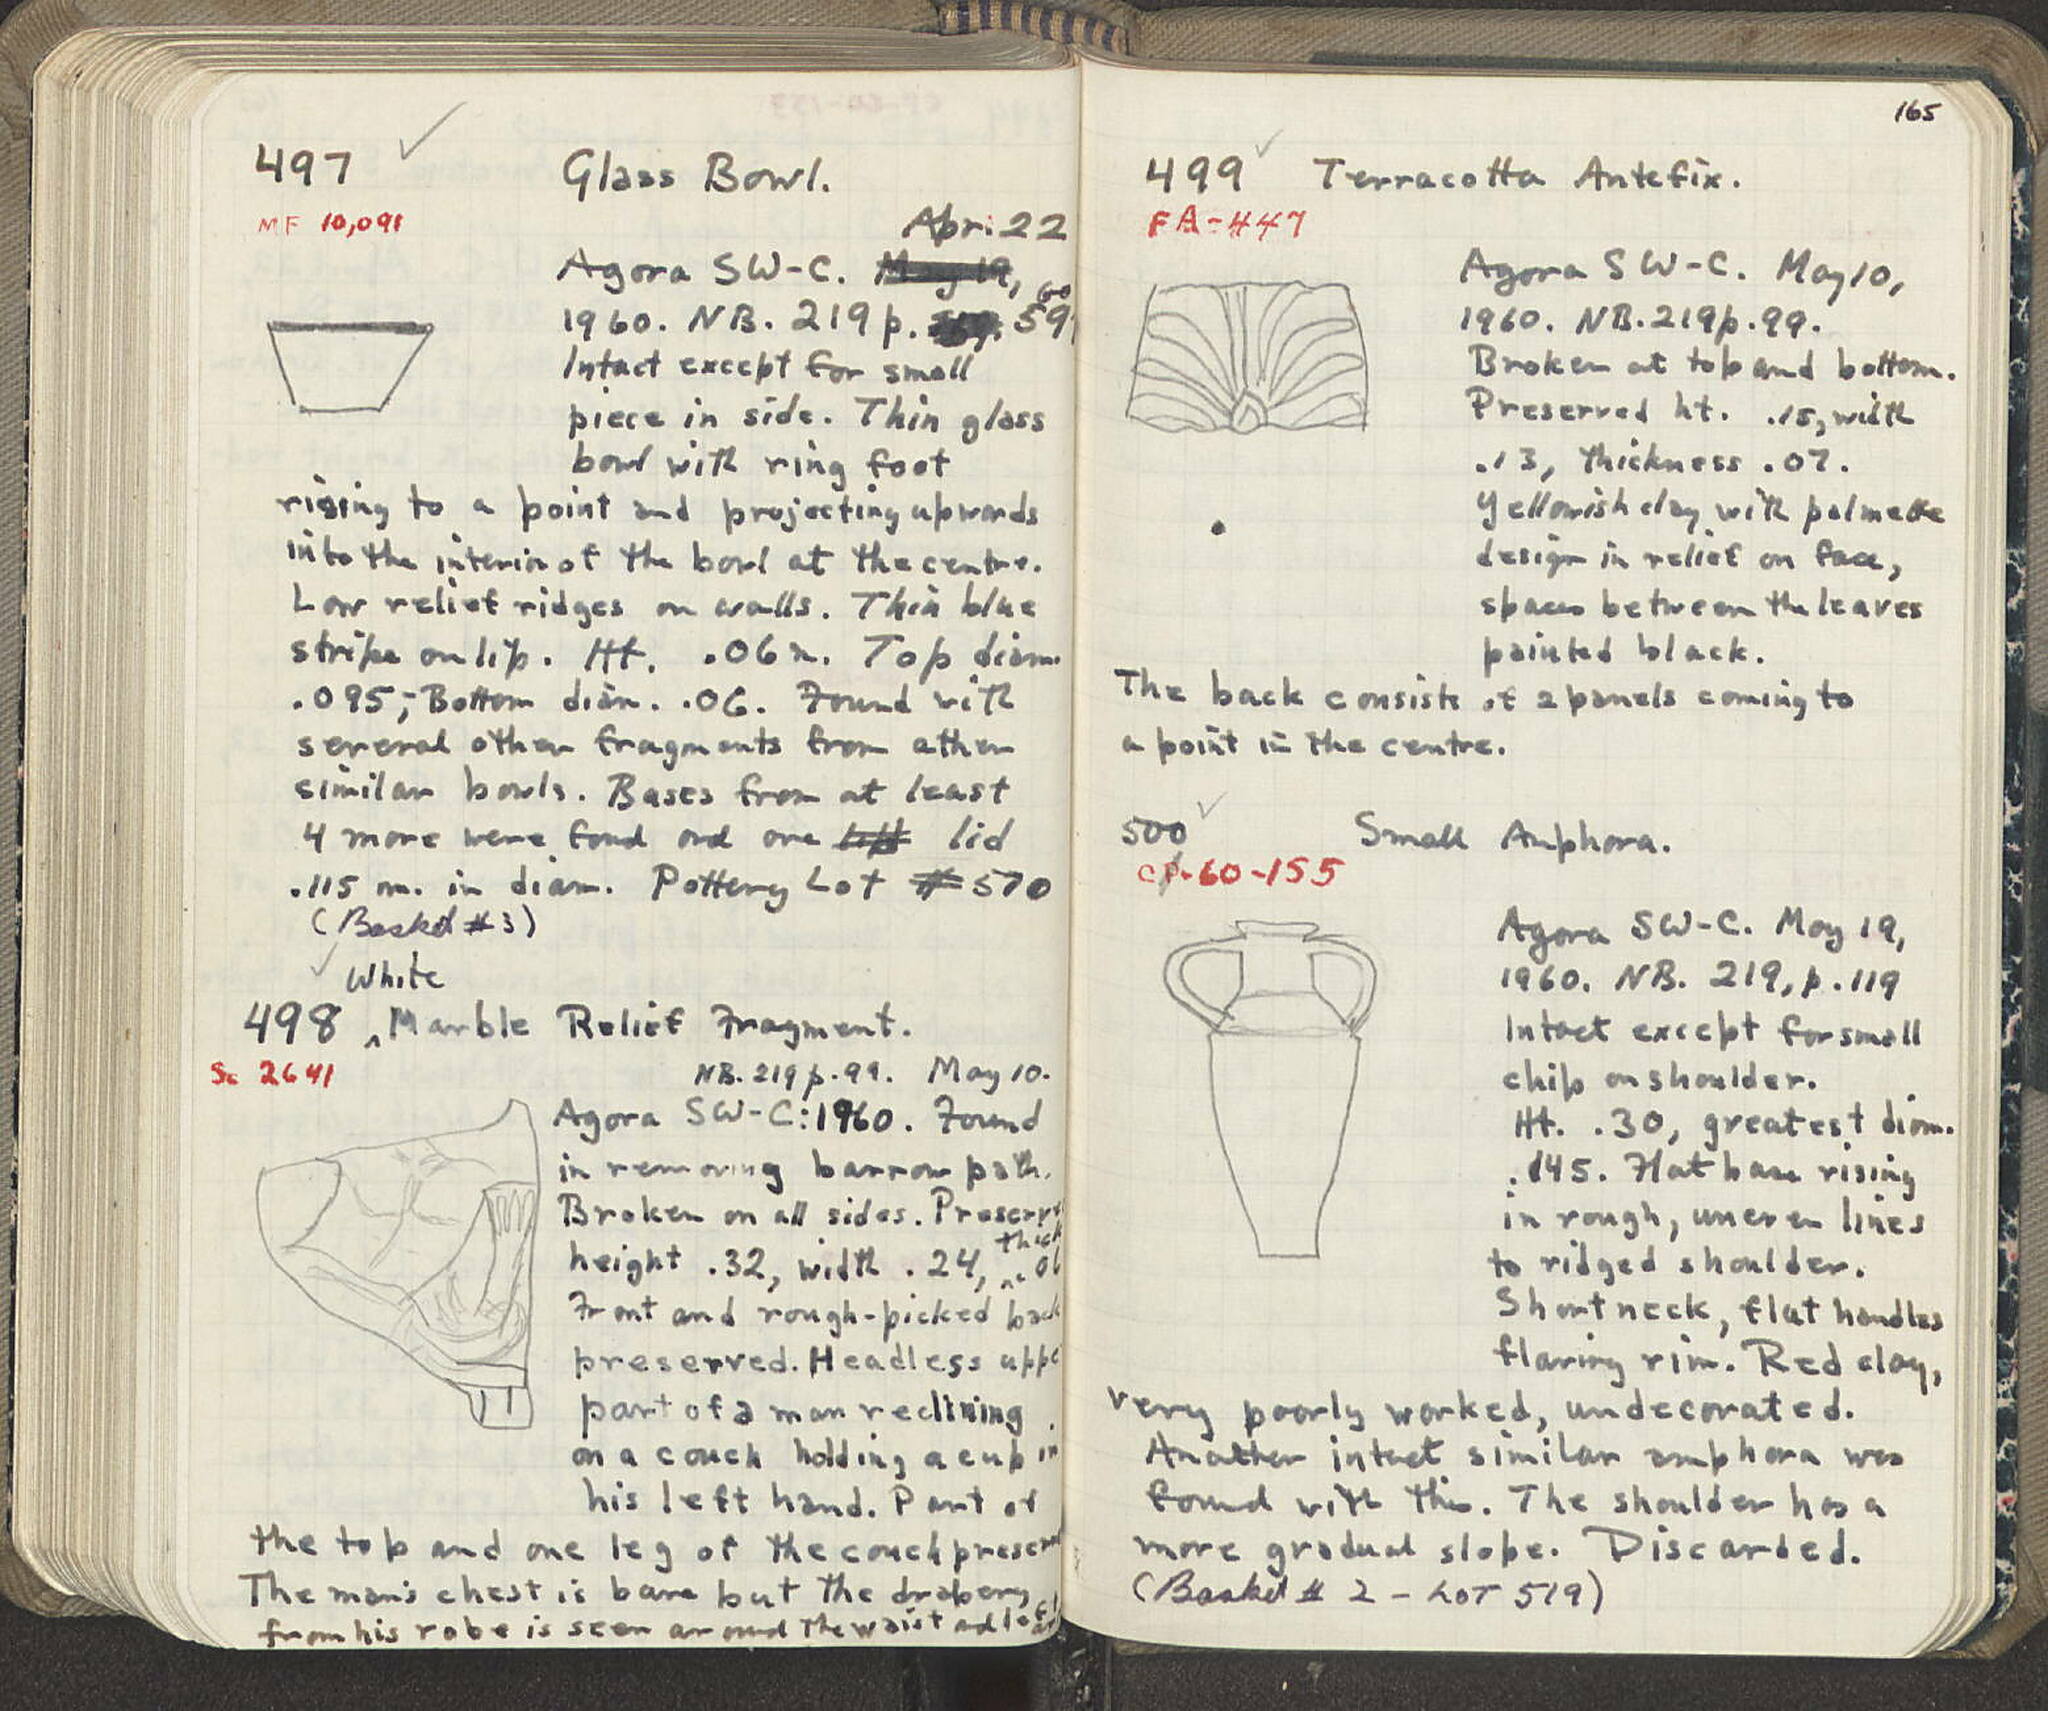 497 Glass Bowl.
MF 10,091
Apr. 22
Agora SW-C. May 19, 60
1960. NB. 219 p. 59
Intact except for small
piece in side. Thin glass
bowl with ring foot
rising to a point and projecting upwards
into the interior of the bowl at the centre.
Low relief ridges on walls. Thin blue
stripe on lip. Ht. .06 m. Top diam.
.095; Bottom diam. .06. Found with
several other fragments from other
similar bowls. Bases from at least
4 more were found and one lid
.115 m. in diam. Pottery Lot # 570
(Basket #3)
White
498 ^ Marble Relief Fragment.
Sc 2641
NB. 219 p. 99. May 10.
Agora SW-C: 1960. Found
in removing barrow path.
Broken on all sides. Preserve
thick
height .32, width .24, ^
Front and rough-picked back
preserved. Headless uppe
part of a man reclining
on a couch holding a cup in
his left hand. Part of
the top and one leg of the couch preserved
The man's chest is bare but the drapery
from his robe is seen around the waist and left
165
499 Terracotta Antefix.
FA-447
Agora SW-C. May 10,
1960. NB. 219 p. 99.
Broken at top and bottom.
Preserved ht. .15, width
.13, thickness .07.
Yellowish clay with palmette
design in relief on face,
spaces between the leaves
painted black.
The back consists of 2 panels coming to
a point in the centre.
500 Small Amphora.
CP-60-155
Agora SW-C. May 19,
1960. NB. 219, p. 119
Intact except for small
chip on shoulder.
Ht. .30, greatest diam.
.145. Flat base rising
in rough, uneven lines
to ridged shoulder.
Short neck, flat handles
flaring rim. Red clay,
very poorly worked, undecorated.
Another intact similar amphora was
found with this. The shoulder has a
more gradual slope. Discarded.
(Basket # 2 - LOT 519)